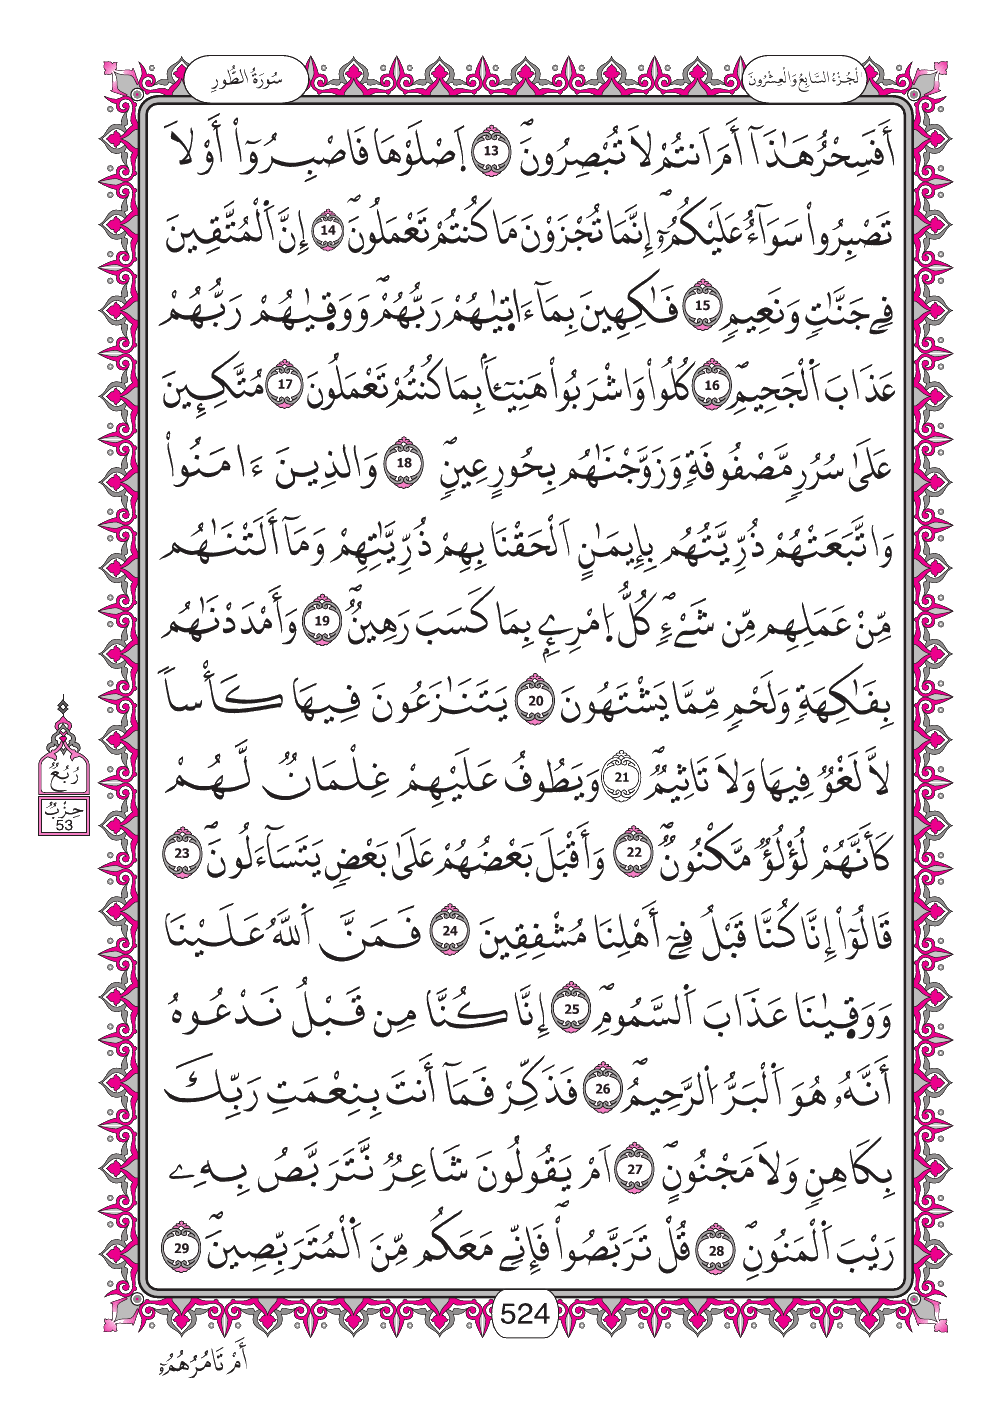 الْجُزْءُ السَّابِعُ وَالْعِشْرُونَ
سُورَةُ الطُّورِ
أَفَسِحْرٌ هَٰذَآ أَمَ اَنتُمْ لَا تُبْصِرُونَۖ 13 اَصْلَوْهَا فَاصْبِرُوٓاْ أَوْ لَا
تَصْبِرُواْ سَوَآءٌ عَلَيْكُمُۥٓۖ إِنَّمَا تُجْزَوْنَ مَا كُنتُمْ تَعْمَلُونَۖ 14 إِنَّ اَ۬لْمُتَّقِينَ
فِے جَنَّٰتٖ وَنَعِيمٖ 15 فَٰكِهِينَ بِمَآ ءَاتٜيٰهُمْ رَبُّهُمْۖ وَوَقٜيٰهُمْ رَبُّهُمْ
عَذَابَ اَ۬لْجَحِيمِۖ 16 كُلُواْ وَاشْرَبُواْ هَنِيٓـٔاَۢ بِمَا كُنتُمْ تَعْمَلُونَ 17 مُتَّكِـِٕينَ
عَلَىٰ سُرُرٖ مَّصْفُوفَةٖ وَزَوَّجْنَٰهُم بِحُورٍ عِينٖۖ 18 وَالذِينَ ءَامَنُواْ
وَاتَّبَعَتْهُمْ ذُرِّيَّتُهُم بِإِيمَٰنٍ اَلْحَقْنَا بِهِمْ ذُرِّيَّٰتِهِمْ وَمَآ أَلَتْنَٰهُم
مِّنْ عَمَلِهِم مِّن شَےْءٖۖ كُلُّ اُ۪مْرِےِٕۢ بِمَا كَسَبَ رَهِينٞۖ 19 وَأَمْدَدْنَٰهُم
بِفَٰكِهَةٖ وَلَحْمٖ مِّمَّا يَشْتَهُونَ 20 يَتَنَٰزَعُونَ فِيهَا كَأْساٗ
لَّا لَغْوٞ فِيهَا وَلَا تَاثِيمٞۖ 21 وَيَطُوفُ عَلَيْهِمْ غِلْمَانٞ لَّهُمْ
كَأَنَّهُمْ لُؤْلُؤٞ مَّكْنُونٞۖ 22 وَأَقْبَلَ بَعْضُهُمْ عَلَىٰ بَعْضٖ يَتَسَآءَلُونَۖ 23
قَالُوٓاْ إِنَّا كُنَّا قَبْلُ فِےٓ أَهْلِنَا مُشْفِقِينَ 24 فَمَنَّ اَ۬للَّهُ عَلَيْنَا
وَوَقٜيٰنَا عَذَابَ اَ۬لسَّمُومِۖ 25 إِنَّا كُنَّا مِن قَبْلُ نَدْعُوهُ
أَنَّهُۥ هُوَ اَ۬لْبَرُّ اُ۬لرَّحِيمُۖ 26 فَذَكِّرْ فَمَآ أَنتَ بِنِعْمَتِ رَبِّكَ
بِكَاهِنٖ وَلَا مَجْنُونٍۖ 27 اَمْ يَقُولُونَ شَاعِرٞ نَّتَرَبَّصُ بِهِۦ
رَيْبَ اَ۬لْمَنُونِۖ 28 قُلْ تَرَبَّصُواْۖ فَإِنِّے مَعَكُم مِّنَ اَ۬لْمُتَرَبِّصِينَۖ 29
رُبُعُ
حِزْبُ
53
524
أَمْ تَامُرُهُمُۥٓ